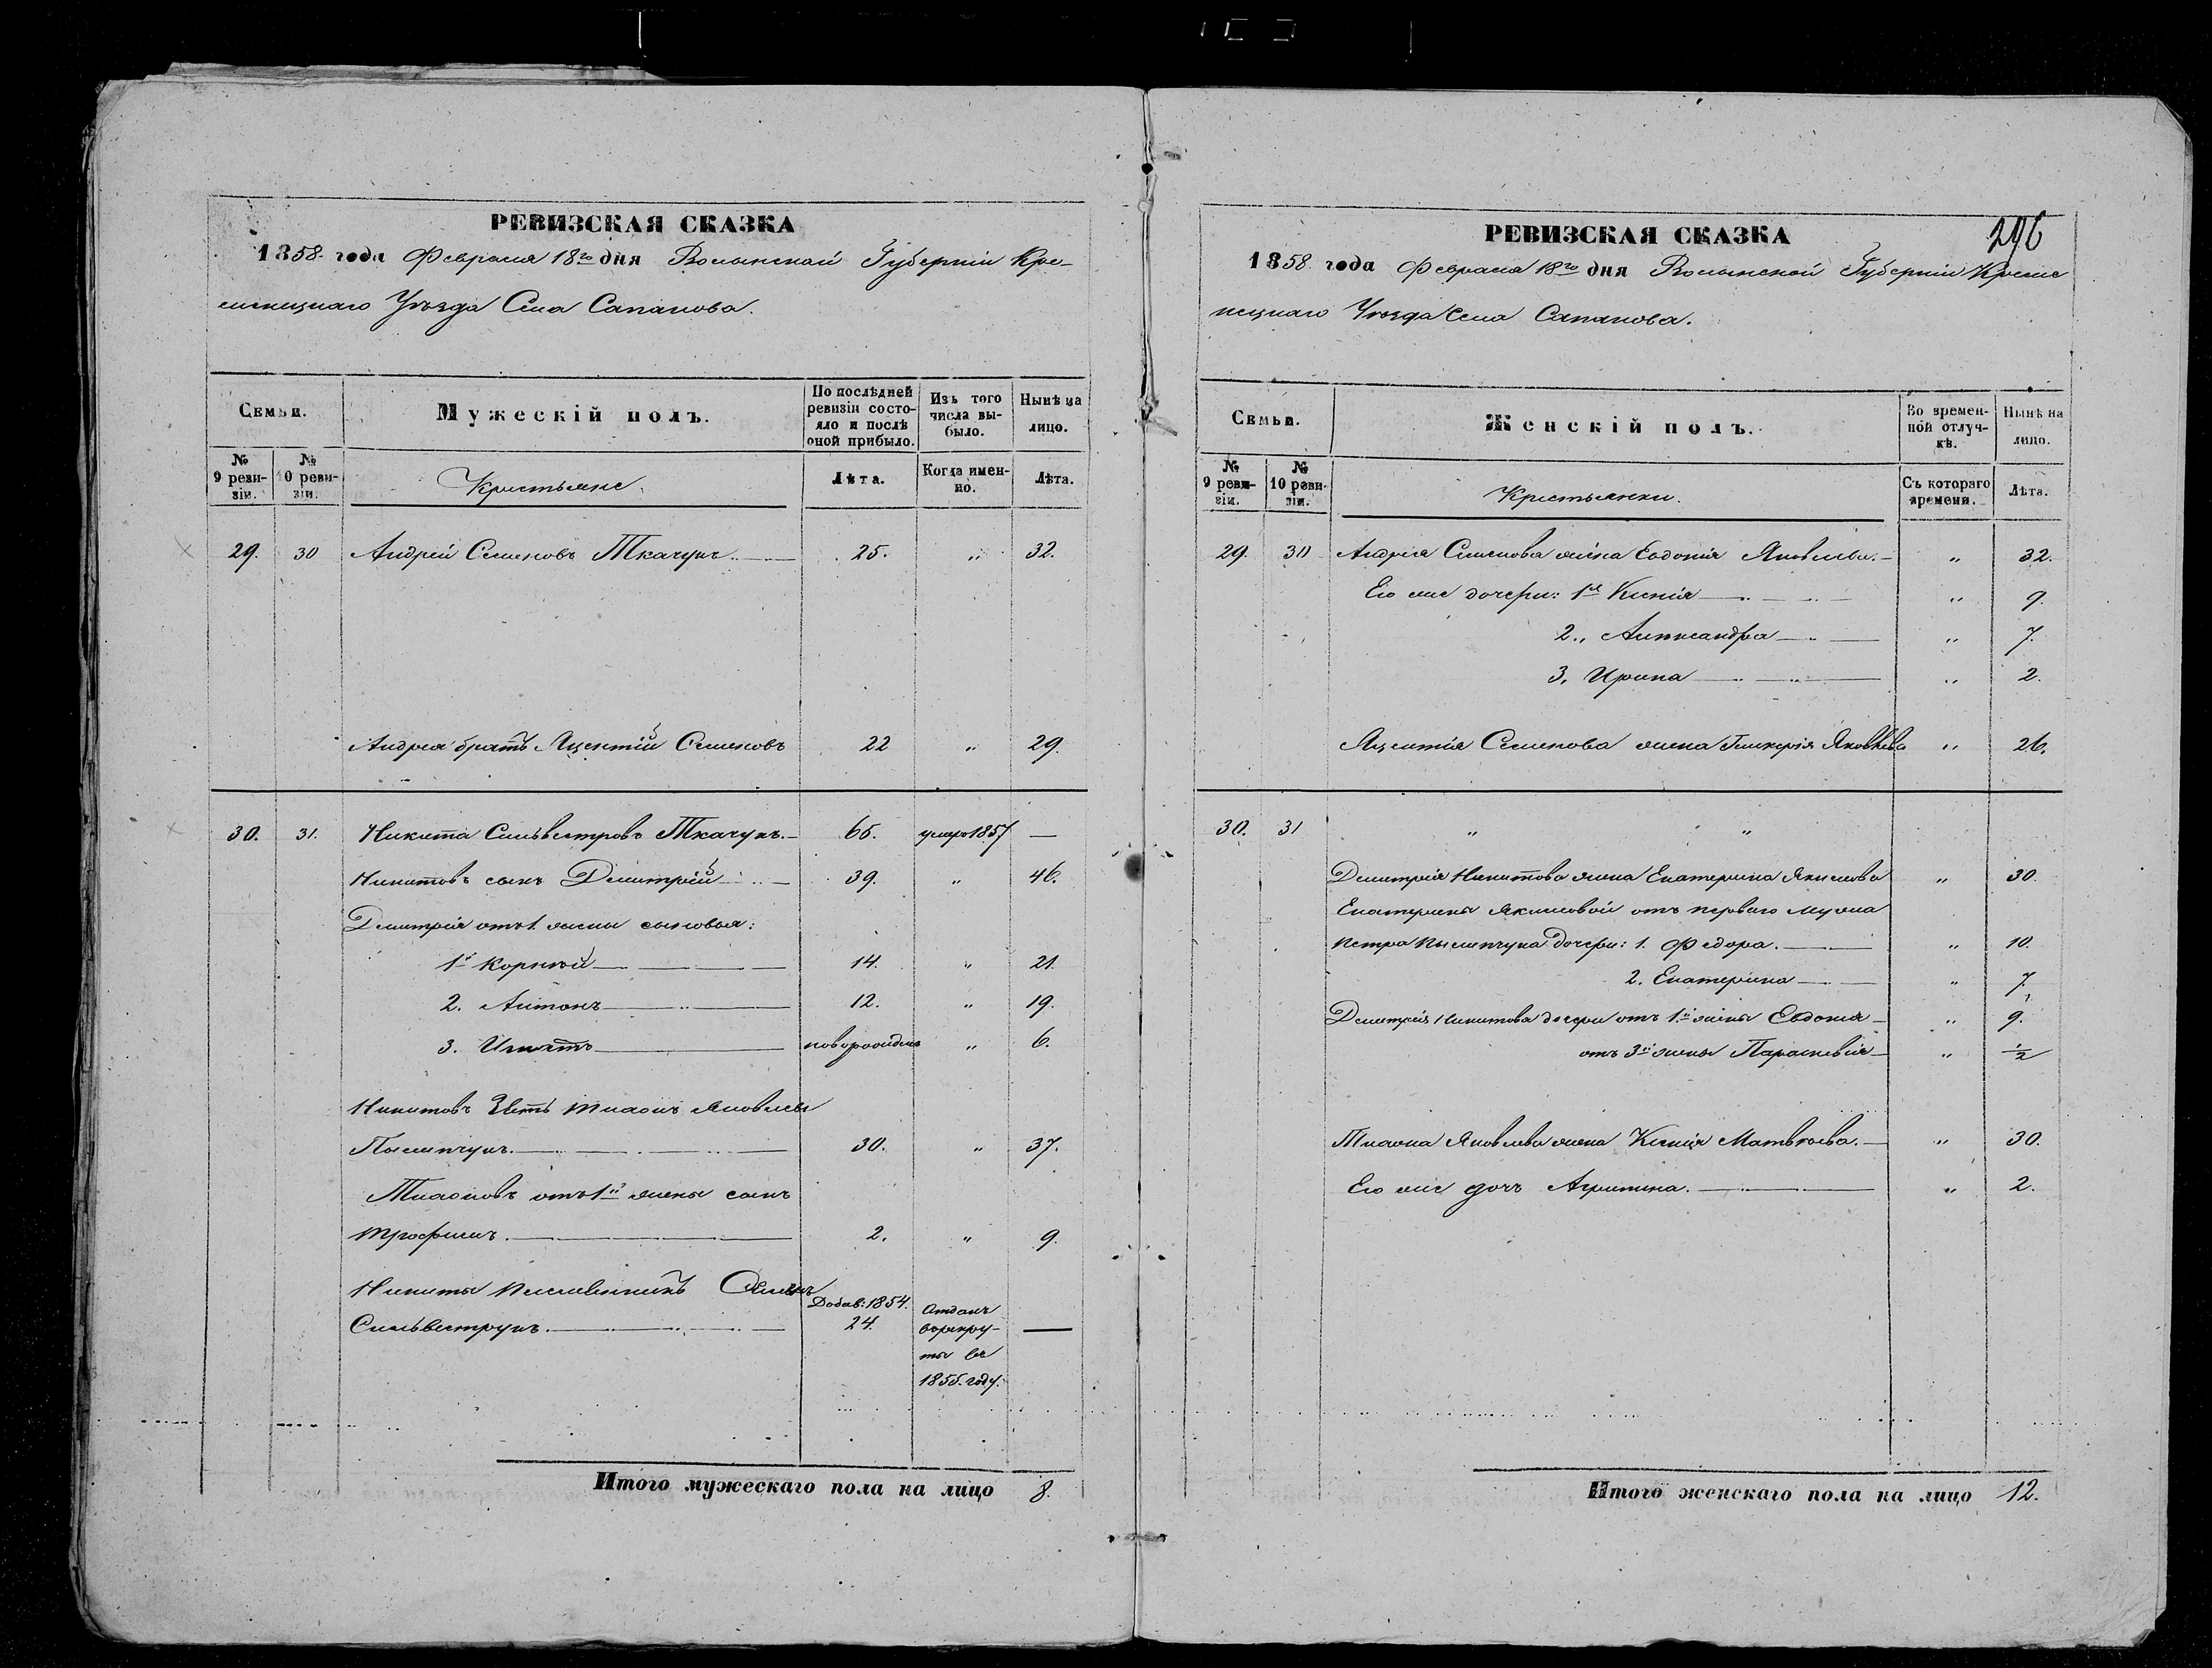 РЕВИЗСКАЯ СКАЗКА
1858 года Февраля 18го дня Волынской Губерніи Кре-
менецкаго Уѣзда Села Сапанова.
Семьи.
Мужескій полъ.
По послѣдней ревизіи состо-
яло и послѣ оной прибыло.
Изъ того числа вы-
было.
Нынѣ на лицо.
№ 9 реви-
зіи.
№ 10 реви-
зіи.
Крестьяне.
Лѣта.
Когда имен-
но.
Лѣта.
29. 30 Андрей Семеновъ Ткачукъ 25. " 32.
Андрея братъ Аксентій Семеновъ 22 " 29.
30. 31. Никита Сильвестровъ Ткачукъ. 65. умеръ 1857 —
Никитовъ сынъ Дмитрій 39. " 46.
Дмитрія отъ 1. жены сыновья:
1й Корнѣй 14. " 21.
2. Антонъ 12. " 19.
3. Игнатъ новорожденъ " 6.
Никитовъ Зять Яковлевъ
30. " 37.
отъ 1й жены сынъ
Трофимъ. 2. " 9.
Никиты племянникъ
Сильвеструкъ. Добав: 1854. 24. Отданъ —
въ рекру-
ты въ
1855. году.
Итого мужескаго пола на лицо 8.
РЕВИЗСКАЯ СКАЗКА
296
1858 года Февраля 18го дня Волынской Губерніи Креме
нецкаго Уѣзда Села Сапанова.
Семьи.
Женскій полъ.
Во времен-
ной отлуч-
кѣ.
Нынѣ на лицо.
№ 9 реви-
зіи.
№ 10 реви-
зіи.
Крестьянки.
Съ котораго времени.
Лѣта.
29. 30 Андрея Семенова жена Евдокія Яковлева. " 32.
Его же дочери: 1я Ксенія " 9.
2., Александра " 7.
3, Ирина " 2.
Аксентія Семенова жена Гликерія Яковлева " 26.
30. 31 " "
Дмитрія Никитова жена Екатерина Якимова " 30.
Екатерины Якимовой отъ перваго мужа
Петра дочери: 1. Федора. " 10.
2. Екатерина " 7.
Дмитрія Никитова дочери отъ 1й жены Евдокія " 9.
отъ 3й жены Параскевія " ½
Яковлева жена Ксенія Матвѣева. " 30.
Его же дочь Агрипина. " 2.
Итого женскаго пола на лицо 12.